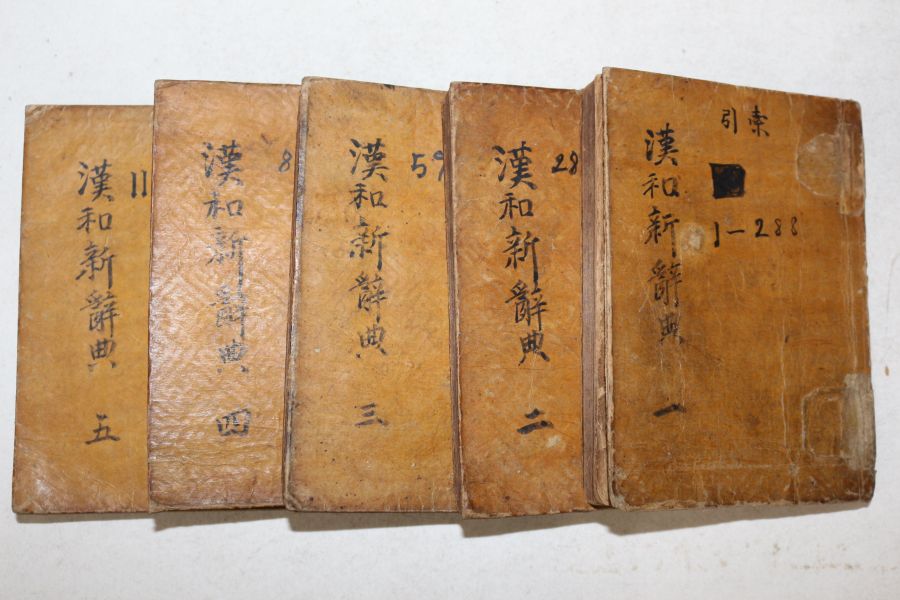 漢和新辭典 一
索引
1-288
漢和新辭典 二
28
漢和新辭典 三
59
漢和新辭典 四
8
漢和新辭典 五
11